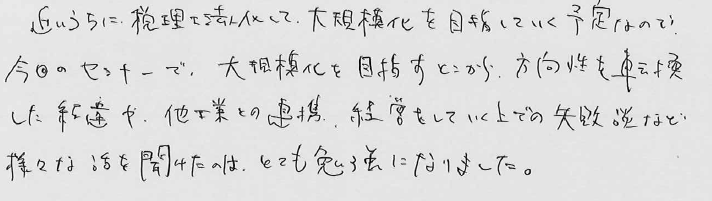 近いうちに、税理士法人化して、大規模化を目指していく予定なので、
今回のセミナーで、大規模化を目指すとこから、方向性を転換
した経営や、他士業との連携、経営をしていく上での失敗談など
様々な話を聞けたのは、とても勉強になりました。